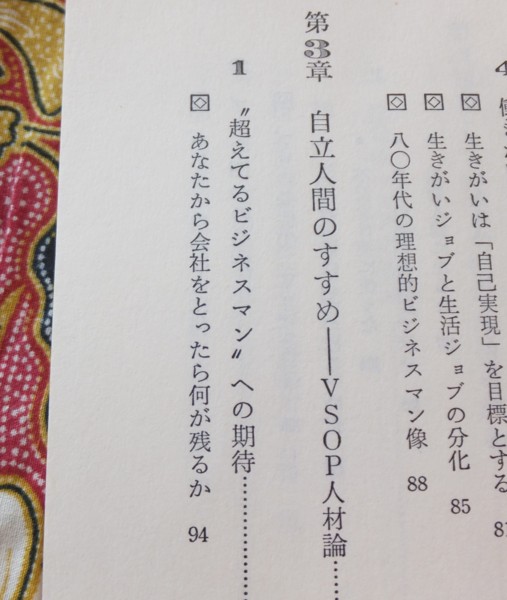 4
生きがいは「自己実現」を目標とする 81
生きがいジョブと生活ジョブの分化 85
八〇年代の理想的ビジネスマン像 88
第3章 自立人間のすすめ――VSOP人材論……
1 〝超えてるビジネスマン〟への期待……………
あなたから会社をとったら何が残るか 94